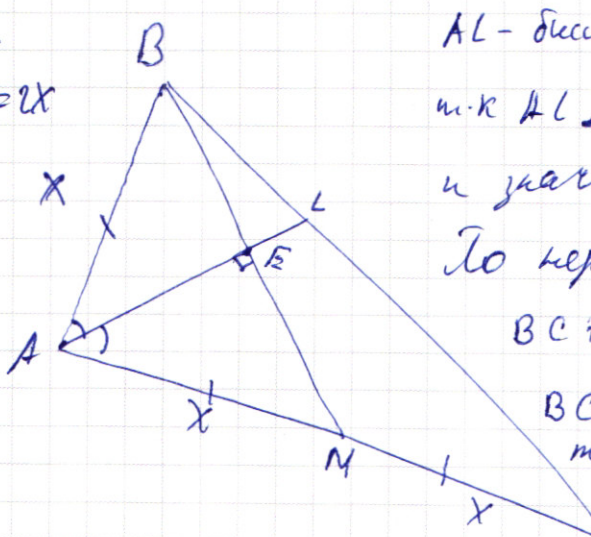 B
=2X
X
L
E
A
X
M
X
AL - бисс
т.к AL ⊥
и знач
По нер
BC +
BC
т